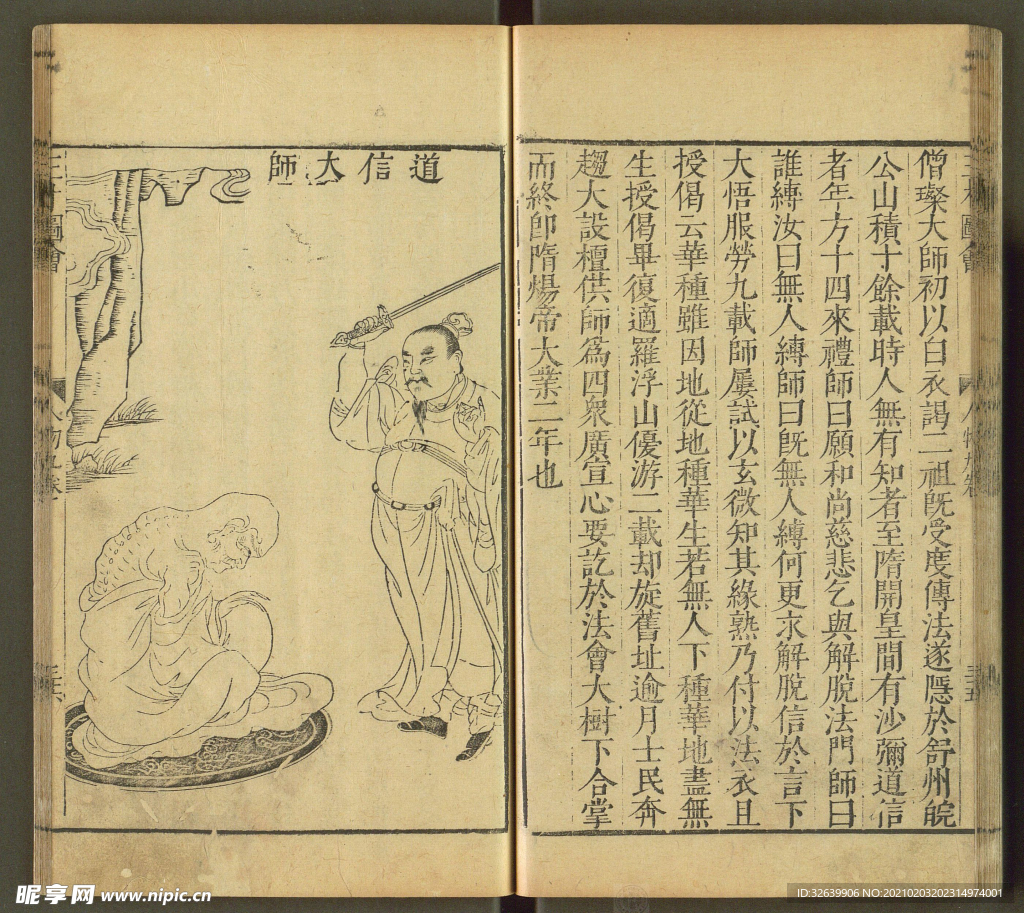 僧璨大師初以白衣謁二祖既受度傳法遂隱於舒州皖
公山積十餘載時人無有知者至隋開皇間有沙彌道信
者年方十四來禮師曰願和尚慈悲乞與解脫法門師曰
誰縛汝曰無人縛師曰既無人縛何更求解脫信於言下
大悟服勞九載師屢試以玄微知其緣熟乃付以法衣且
授偈云華種雖因地從地種華生若無人下種華地盡無
生授偈畢復適羅浮山優游二載却旋舊址逾月士民奔
趨大設檀供師為四衆廣宣心要訖於法會大樹下合掌
而終即隋煬帝大業二年也
道信大師
昵享网 www.nipic.cn
ID:32639906 NO:20210203202314974001